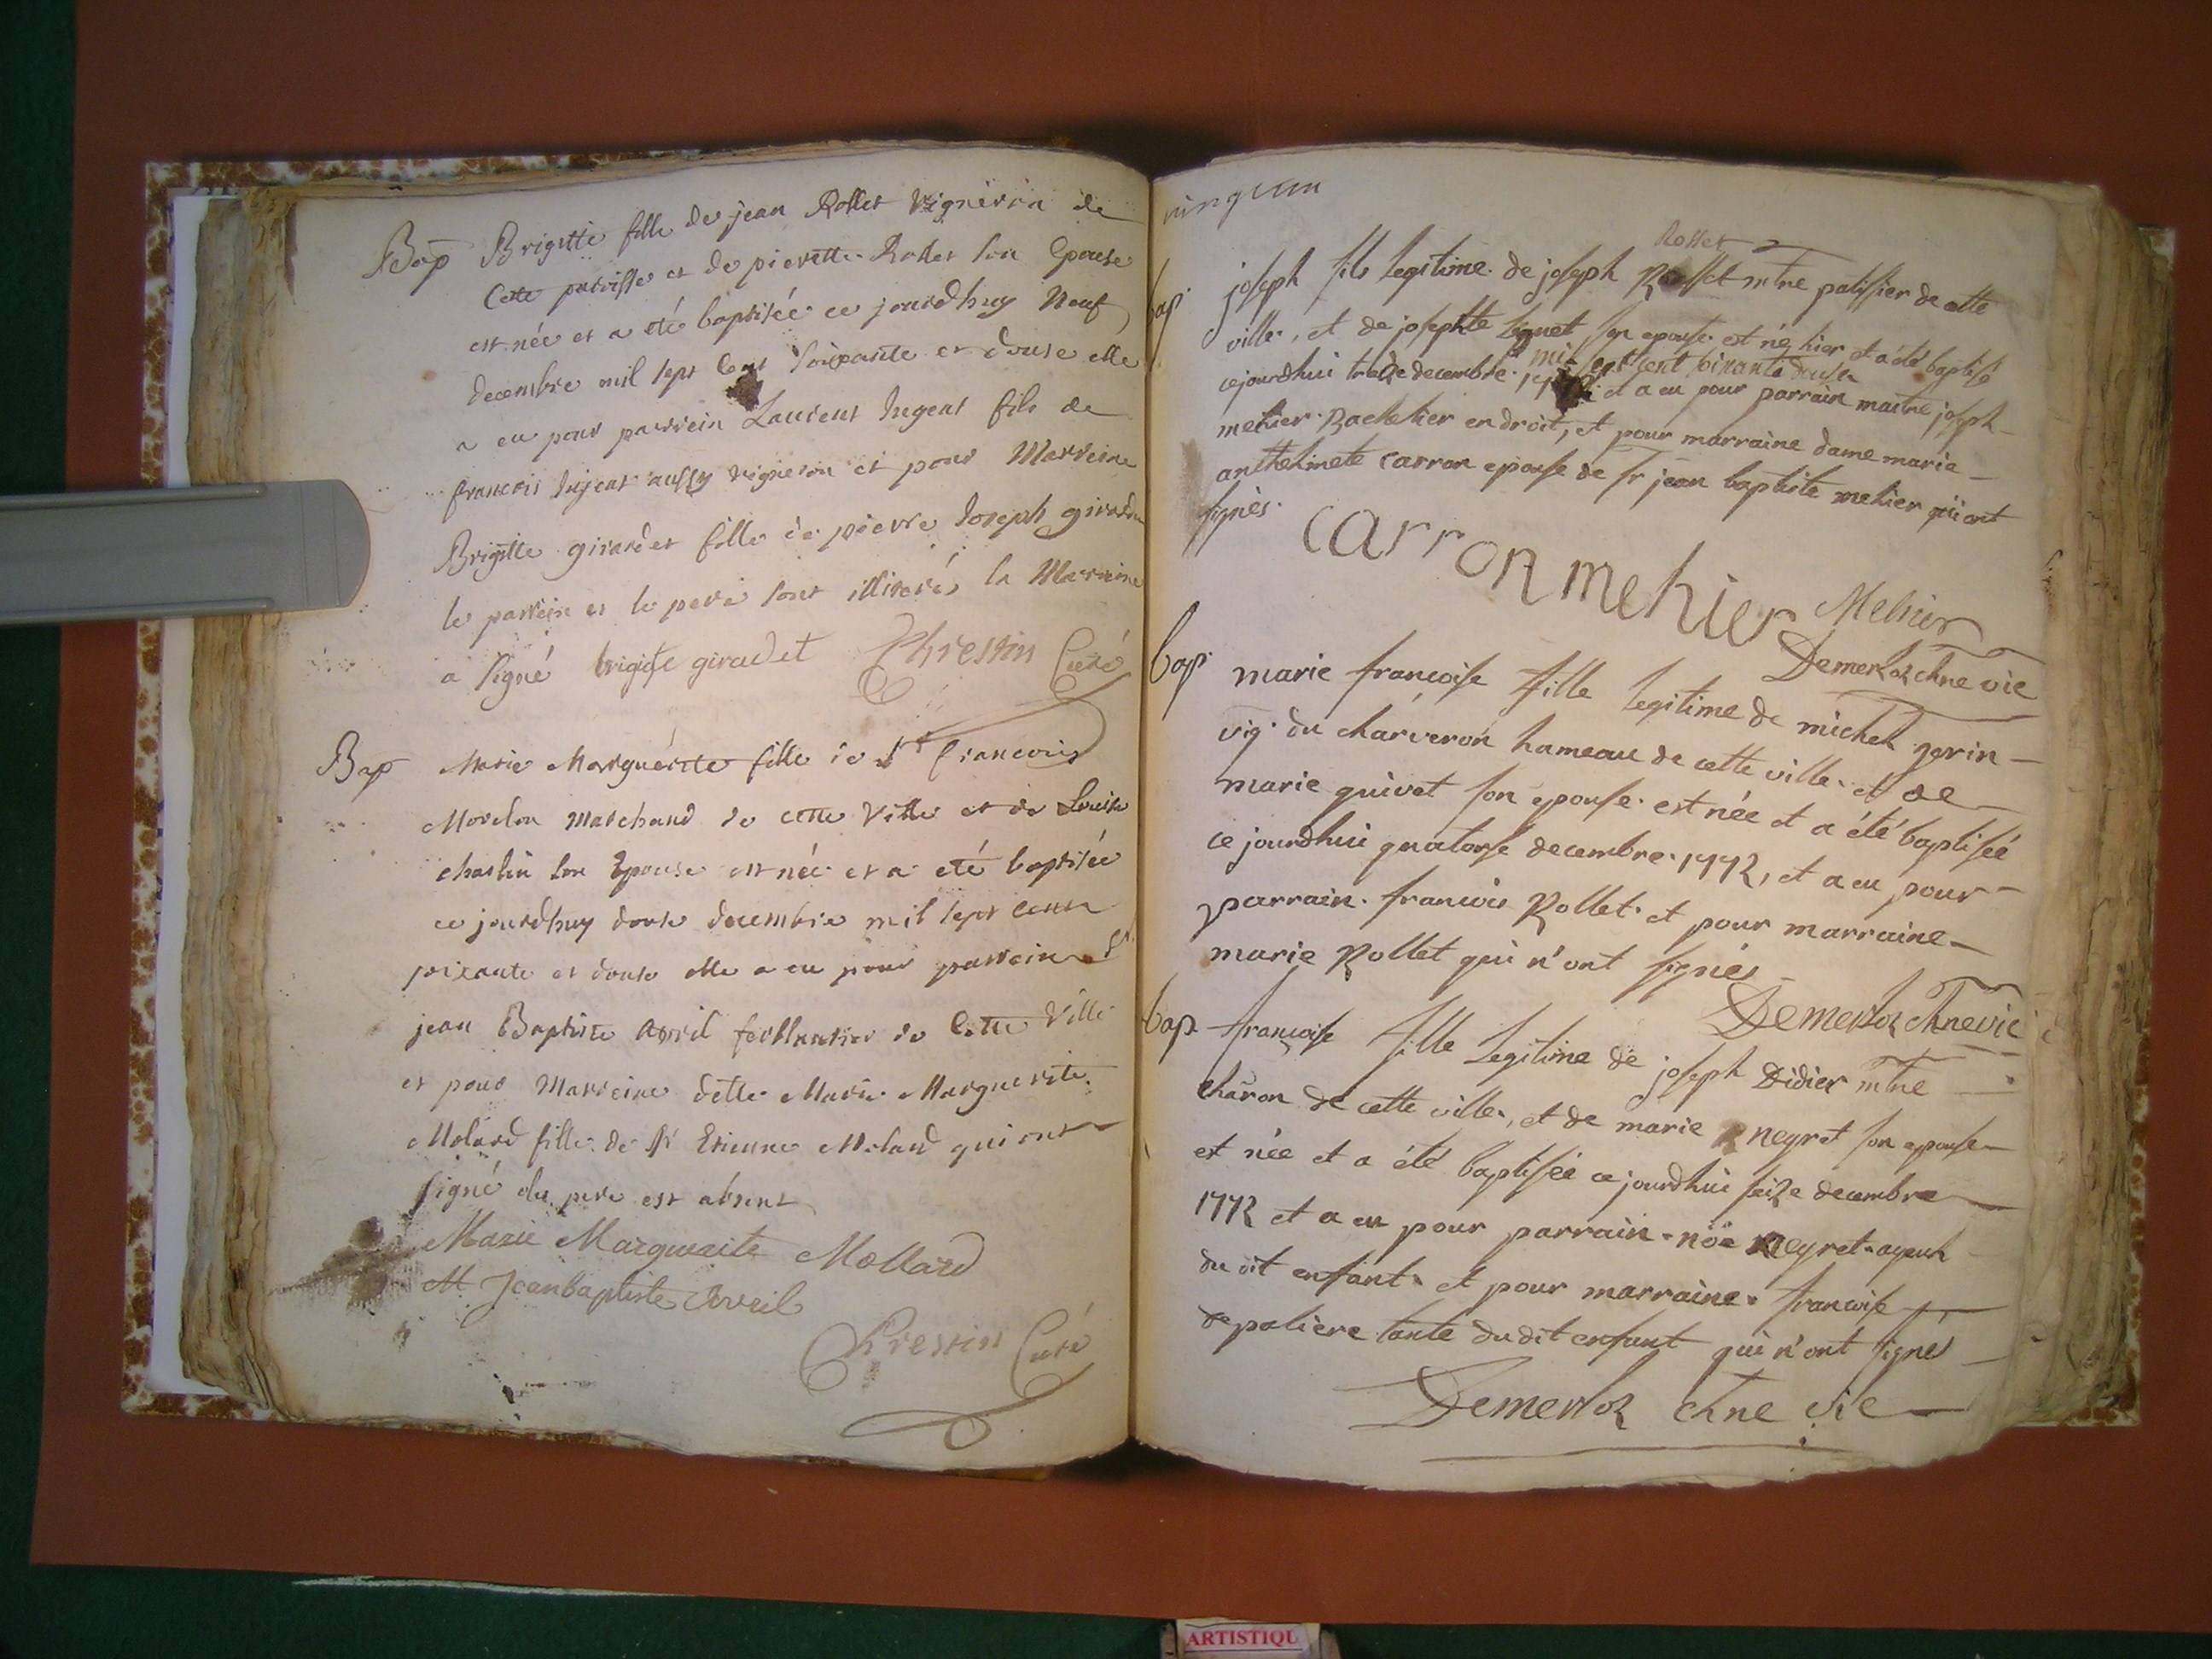 Bap Brigitte fille de jean Rollet vigneron de
Cette paroisse et de pierette Rollet son Epouse
est née et a été baptisée ce jourdhuy Neuf
decembre mil sept cent soixante et douse elle
a eu pour parrein Laurent Jugeat fils de
francois Jujeat aussy vigneron et pour Marreine
Brigitte girardet fille de pierre Joseph
le parrein et le pere sont illiterés la Marreine
a signé brigitte giradet Chrestin Curé
Bap Marie Marguerite fille de Sr francois
marchand de cette Ville et de Louise
son Epouse est née et a été baptisée
ce jourdhuy douse decembre mil sept cent
soixante et douse elle a eu pour parrein Sr
jean Baptiste Avril ferblantier de Cette Ville
et pour Marreine delle Marie Marguerite
Molard fille de Sr Etienne Molard qui ont
signé le pere est absent
Marie Marguerite Mollard
M Jeanbaptiste
Chrestin Curé
Rosset
bap. joseph fils legitime de joseph Rosset mtre patissier de cette
ville, et de josephte son epouse est né hier et a été baptisé
mil sept cent soixante douse
cejourdhui treize decembre et a eu pour parrain maitre joseph
mehier Bachelier en droit, et pour marraine dame marie
anthelmete carron epouse de sr jean baptiste mehier qui ont
signés.
carron mehier Mehier
Demerloz chne vic
bap. marie francoise fille legitime de michel
vig. du charveron hameau de cette ville et de
marie guivet son epouse est née et a été baptisée
ce jourdhui quatorse decembre 1772, et a eu pour
parrain francois Rollet et pour marraine
marie Rollet qui n'ont signés
Demerloz chne vic
bap. françoise fille legitime de joseph Didier mtre
charon de cette ville, et de marie neyret son epouse
et née et a été baptisée ce jourdhui seize decembre
1772 et a eu pour parrain noë neyret ayeul
du dit enfant et pour marraine francoise
depaliere tante dudit enfant qui n'ont signé
Demerloz chne vic
ARTISTIQU